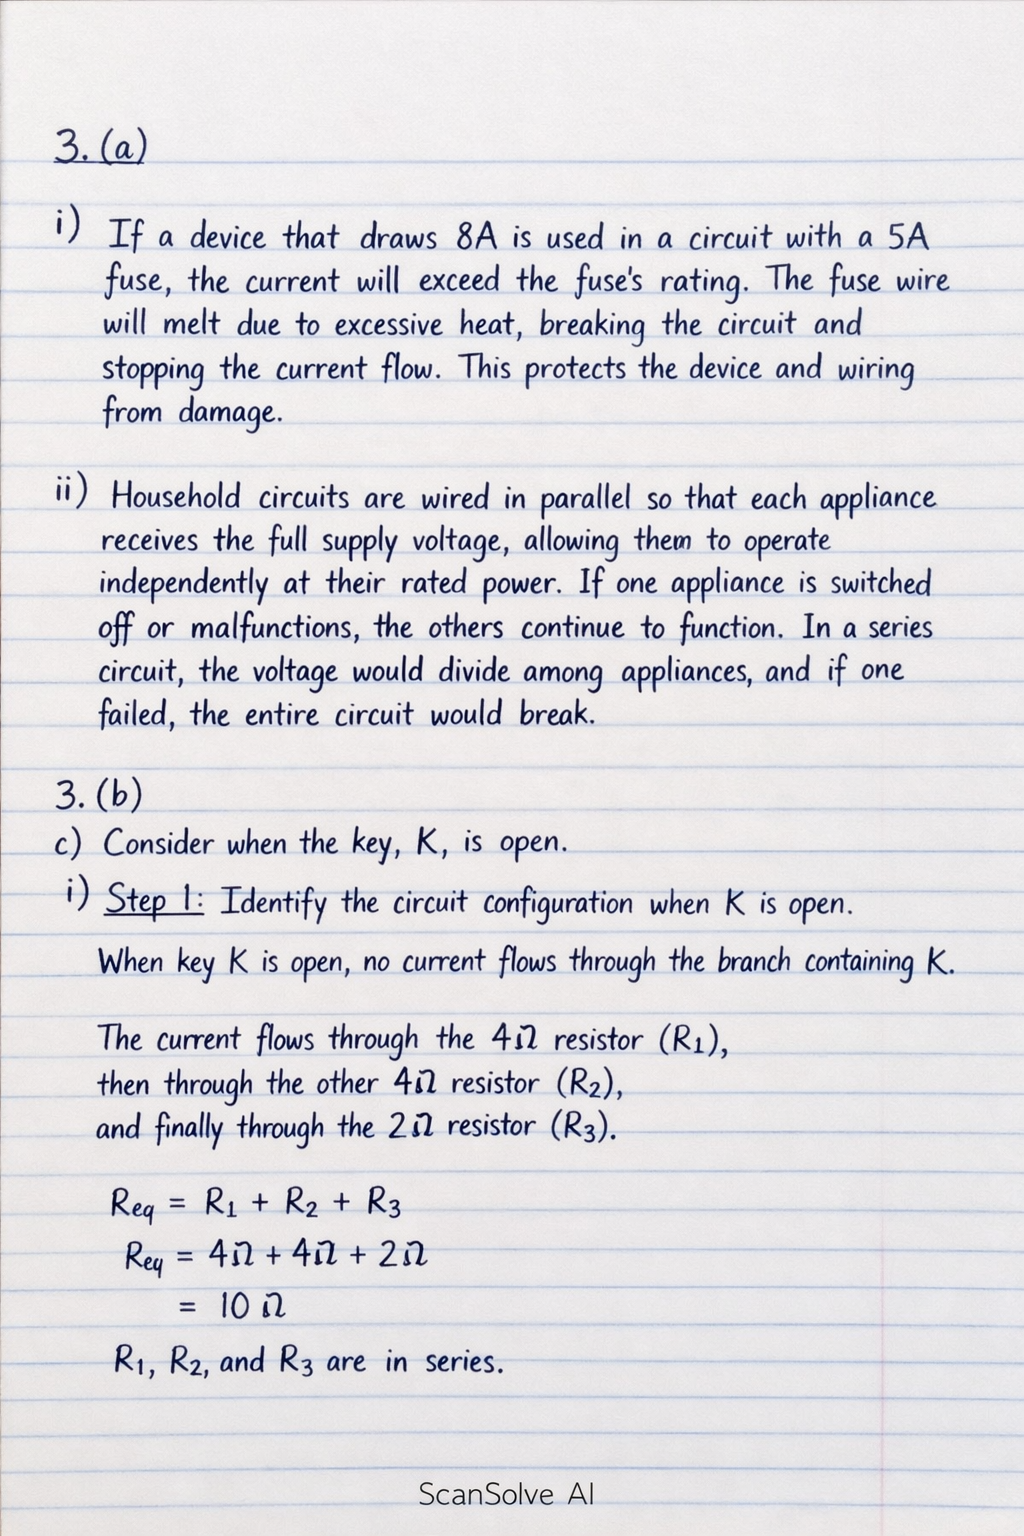 3. (a)
i) If a device that draws 8A is used in a circuit with a 5A
fuse, the current will exceed the fuse's rating. The fuse wire
will melt due to excessive heat, breaking the circuit and
stopping the current flow. This protects the device and wiring
from damage.
ii) Household circuits are wired in parallel so that each appliance
receives the full supply voltage, allowing them to operate
independently at their rated power. If one appliance is switched
off or malfunctions, the others continue to function. In a series
circuit, the voltage would divide among appliances, and if one
failed, the entire circuit would break.
3. (b)
c) Consider when the key, K, is open.
i) Step 1: Identify the circuit configuration when K is open.
When key K is open, no current flows through the branch containing K.
The current flows through the 4Ω resistor (R₁),
then through the other 4Ω resistor (R₂),
and finally through the 2Ω resistor (R₃).
Req = R₁ + R₂ + R₃
Req = 4Ω + 4Ω + 2Ω
= 10 Ω
R₁, R₂, and R₃ are in series.
ScanSolve AI